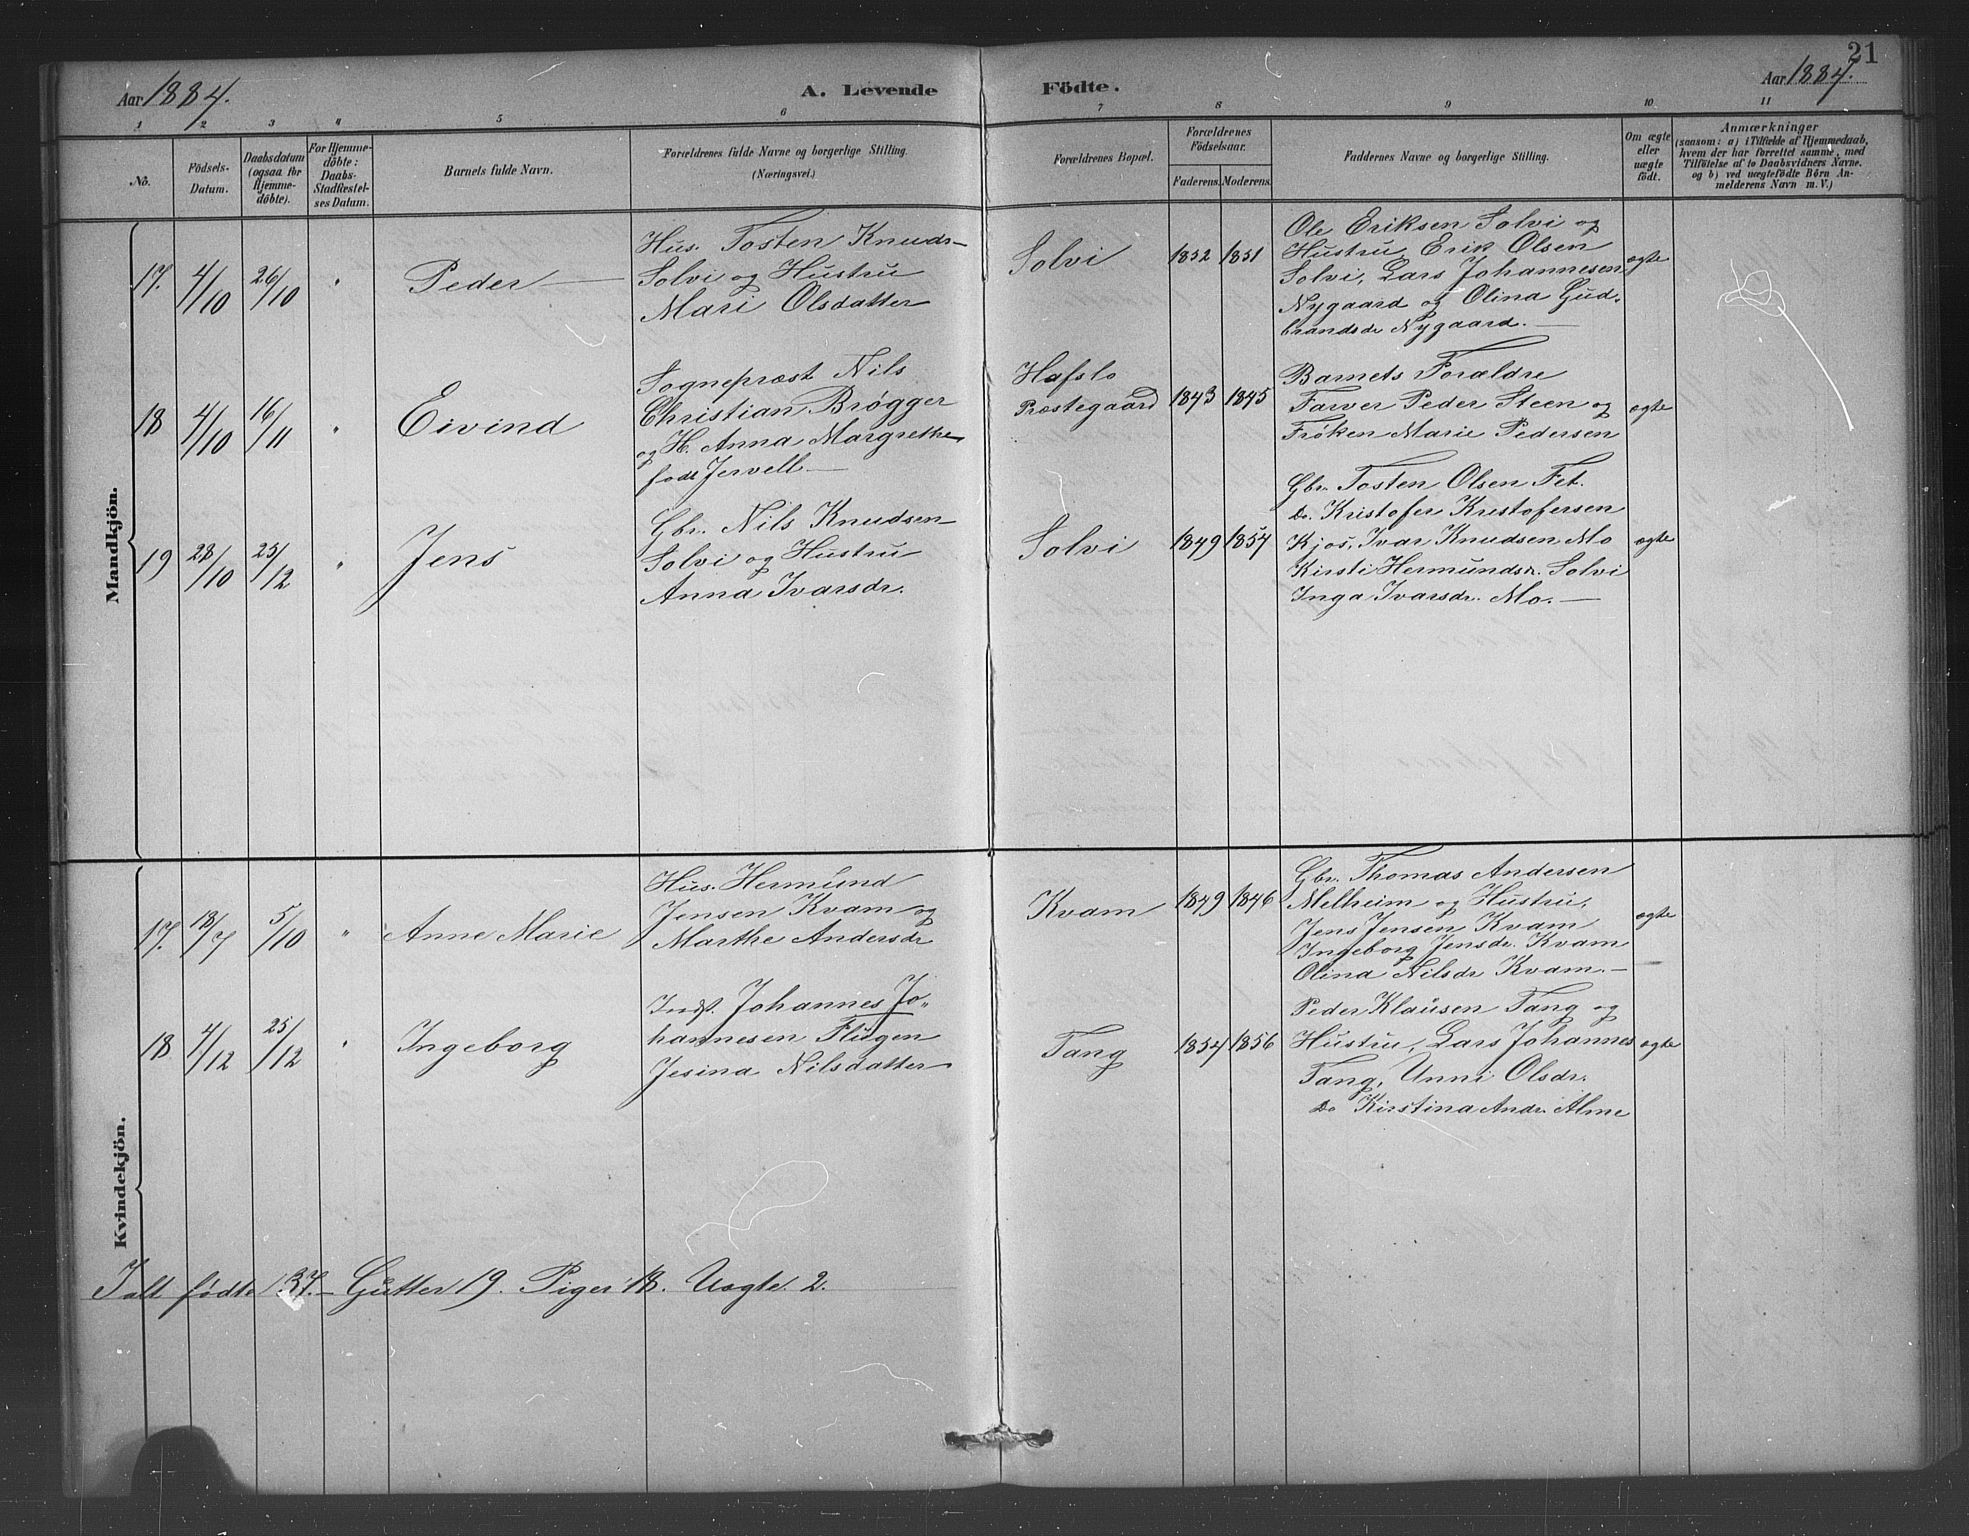 21
Aar 1884.
A. Levende Födte.
Aar 1884.
1 2 3 4 5 6 7 8 9 10 11
No.
Födsels-
Datum.
Daabsdatum
(ogsaa for
Hjemme-
döbte).
For Hjemme-
döbte:
Daabs-
Stadfæstel-
ses Datum.
Barnets fulde Navn.
Forældrenes fulde Navne og borgerlige Stilling.
(Næringsvei.)
Forældrenes Bopæl.
Forældrenes
Födselsaar.
Faderens. Moderens.
Faddernes Navne og borgerlige Stilling.
Om ægte
eller
uægte
født.
Anmærkninger
(saasom: a) i Tilfælde af Hjemmedaab,
hvem der har forrettet samme, med
Tilföielse af to Daabsvidners Navne.
og b) ved uægtefödte Börn An-
melderens Navn m. V.)
Mandkjön.
17. 4/10 26/10 " Peder
Hus. Tosten Knuds-
Solvi og Hustru
Mari Olsdatter
Solvi 1852 1851
Ole Eriksen Solvi og
Hustru, Erik Olsen
Solvi, Lars Johannesen
Nygaard og Olina Gud-
brandsdr Nygaard.
ægte
18 4/10 16/11 " Eivind
Sognepræst Nils
Christian Brøgger
og H. Anna Margrethe
født Jervell
Hafslo
Præstegaard 1843 1845
Barnets Forældre
Farver Peder Steen og
Frøken Marie Pedersen
ægte
19 28/10 25/12 " Jens
Gbr. Nils Knudsen
Solvi og Hustru
Anna Ivarsdr.
Solvi 1849 1854
Gbr. Tosten Olsen Fet.
Do. Kristofer Kristofersen
Kjos, Ivar Knudsen Mo
Kirsti Hermundsr. Solvi
Inga Ivarsdr. Mo.
ægte
Kvindekjön.
17. 18/7 5/10 " Anne Marie
Hus. Hermund
Jensen Kvam og
Marthe Andersdr
Kvam 1849 1846
Gbr. Thomas Andersen
Melheim og Hustru,
Jens Jensen Kvam
Ingeborg Jensdr. Kvam
Olina Nilsdr Kvam.
ægte
18 4/12 25/12 " Ingeborg
Indst. Johannes Jo-
hannesen Flugen
Jesina Nilsdatter
Tang 1854 1856
Peder Klausen Tang og
Hustru, Lars Johannes
Tang, Unni Olsdr.
Do Kirstina Andr. Alme
ægte
I alt fødte 37. – Gutter 19. Piger 18. Uægte. 2.